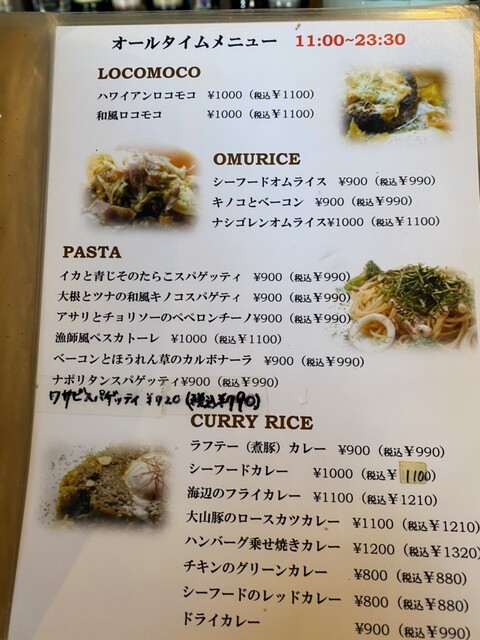 オールタイムメニュー 11:00~23:30
LOCOMOCO
ハワイアンロコモコ ¥1000（税込¥1100）
和風ロコモコ ¥1000（税込¥1100）
OMURICE
シーフードオムライス ¥900（税込¥990）
キノコとベーコン ¥900（税込¥990）
ナシゴレンオムライス¥1000（税込¥1100）
PASTA
イカと青じそのたらこスパゲッティ ¥900（税込¥990）
大根とツナの和風キノコスパゲティ ¥900（税込¥990）
アサリとチョリソーのペペロンチーノ¥900（税込¥990）
漁師風ペスカトーレ ¥1000（税込¥1100）
ベーコンとほうれん草のカルボナーラ ¥900（税込¥990）
ナポリタンスパゲッティ¥900（税込¥990）
ワサビスパゲッティ ¥720（税込¥790）
CURRY RICE
ラフテー（煮豚）カレー ¥900（税込¥990）
シーフードカレー ¥1000（税込¥1100）
海辺のフライカレー ¥1100（税込¥1210）
大山豚のロースカツカレー ¥1100（税込¥1210）
ハンバーグ乗せ焼きカレー ¥1200（税込¥1320）
チキンのグリーンカレー ¥800（税込¥880）
シーフードのレッドカレー ¥800（税込¥880）
ドライカレー ¥900（税込¥990）